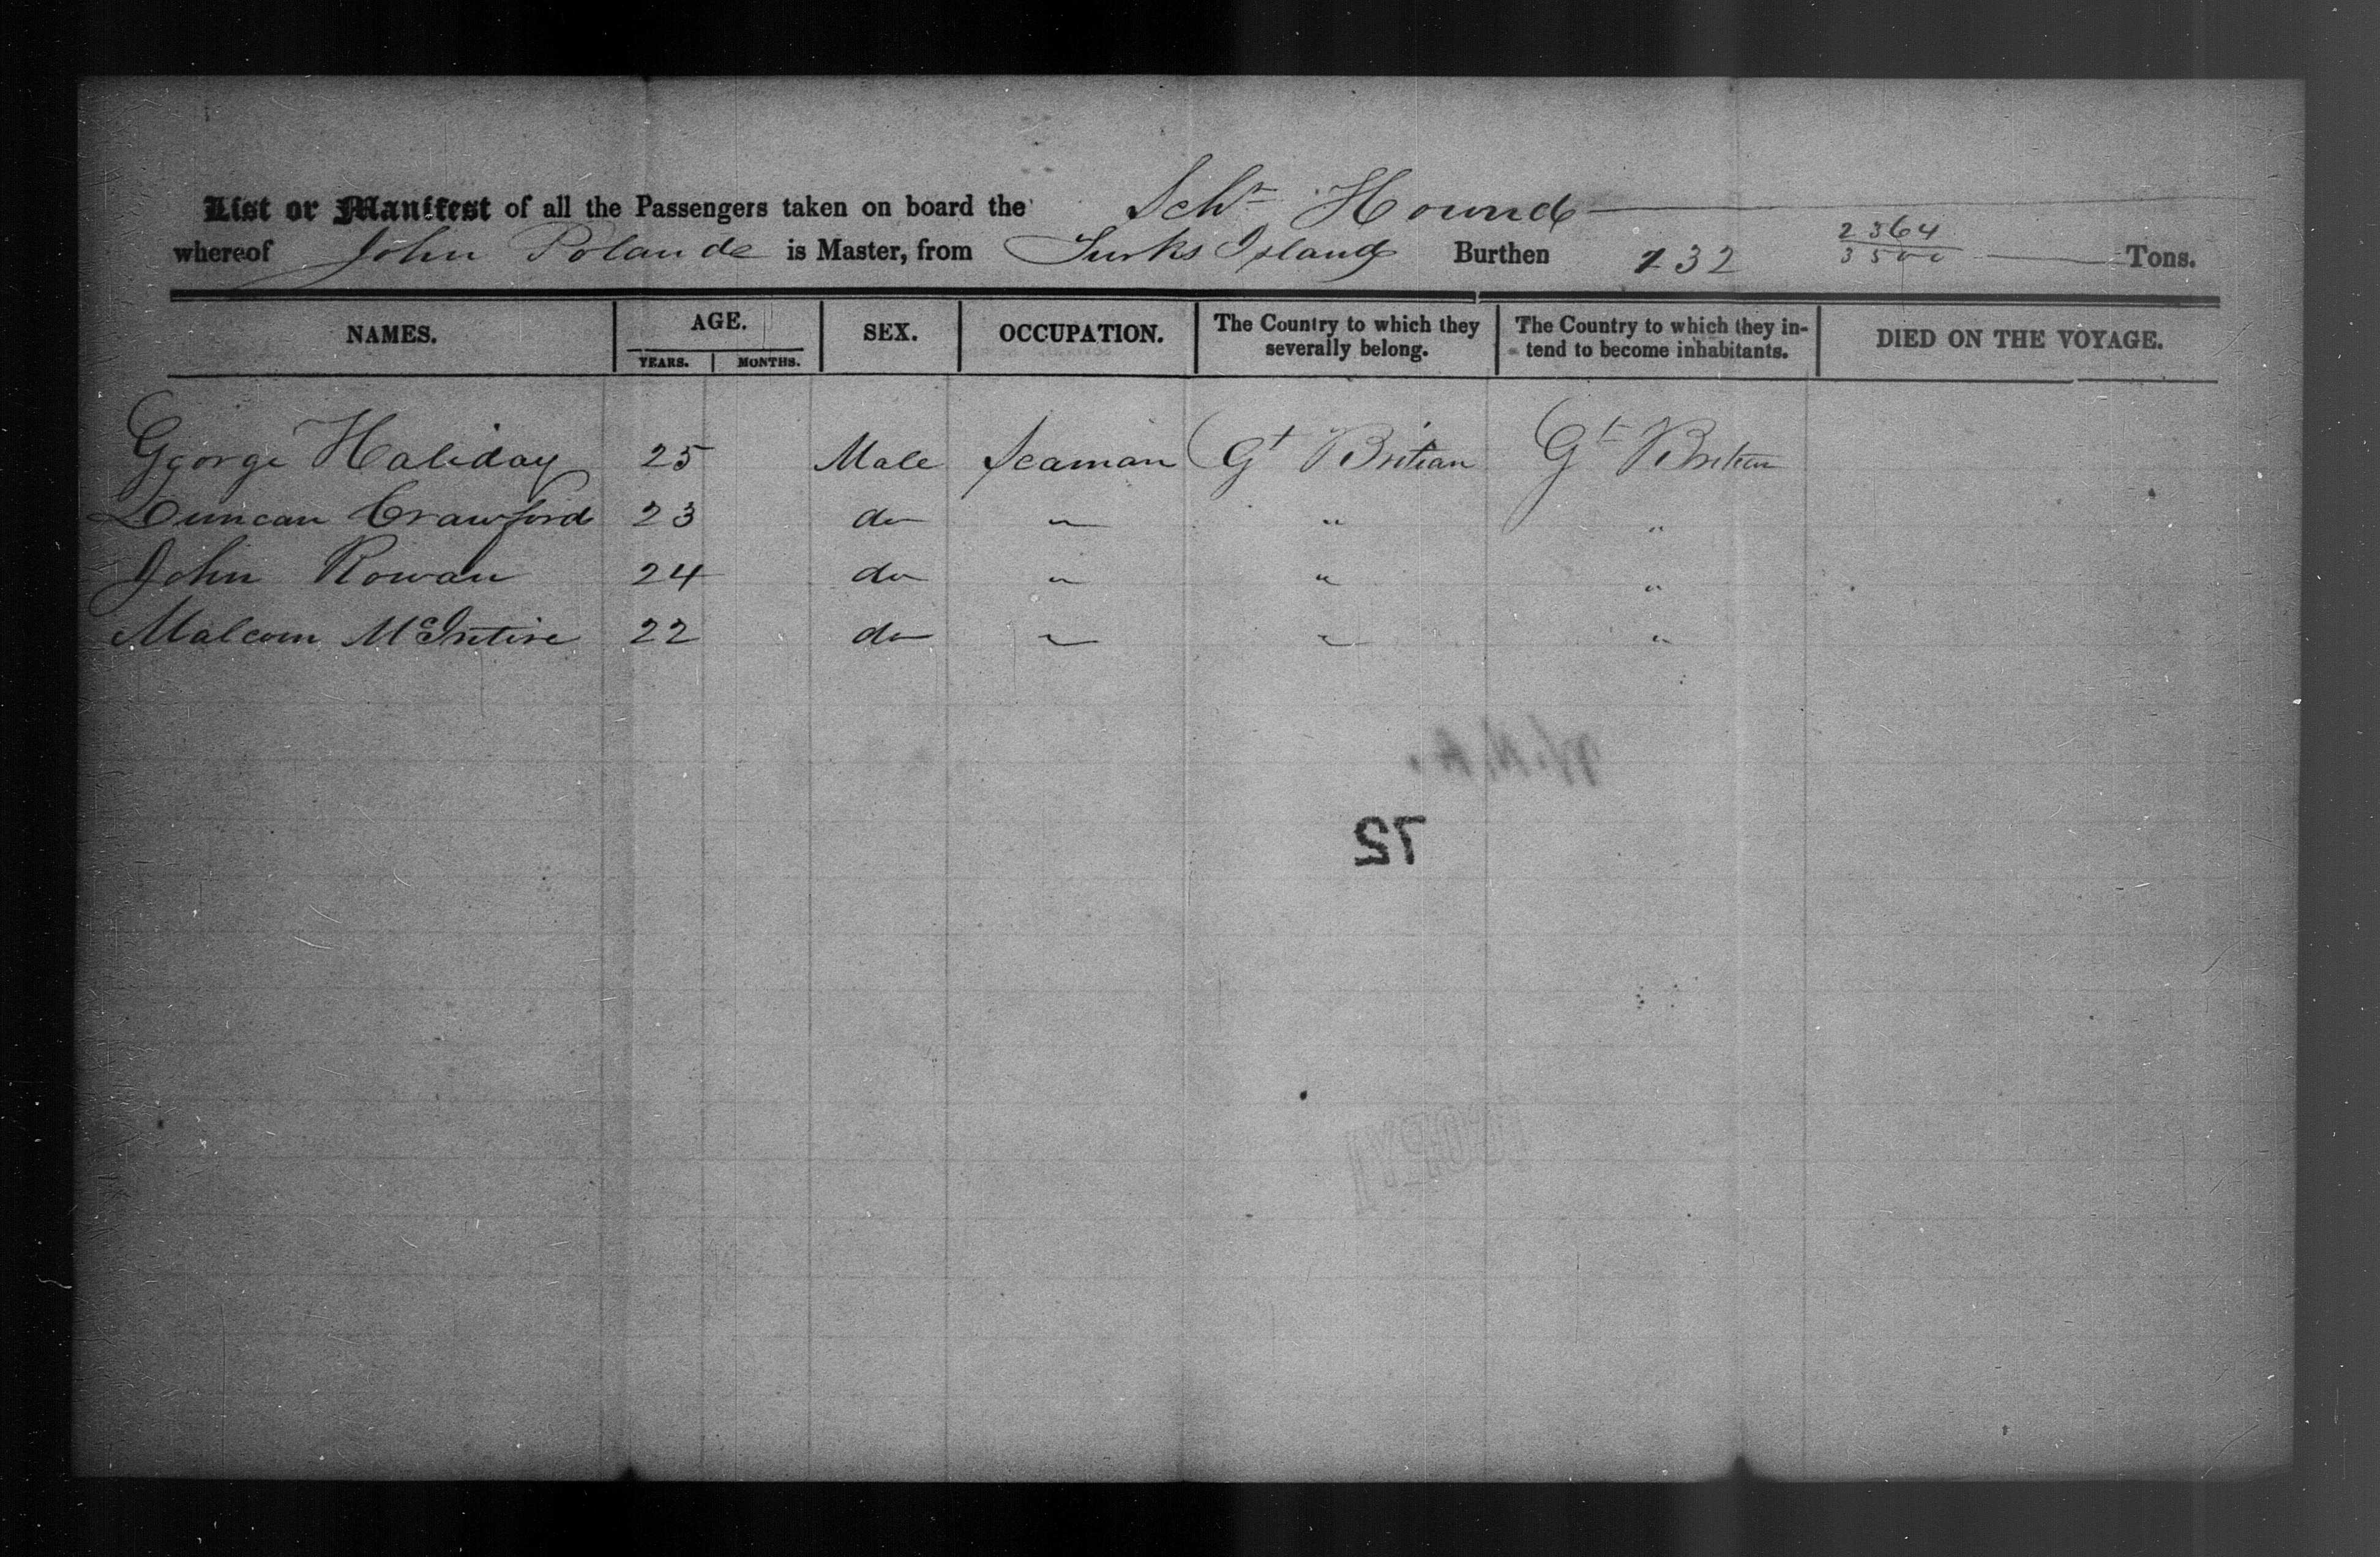 List or Manifest of all the Passengers taken on board the Schr Hound
whereof John Polande is Master, from Turks Island Burthen 132 2364/3500 Tons.
NAMES. AGE. SEX. OCCUPATION. The Country to which they severally belong. The Country to which they in- tend to become inhabitants. DIED ON THE VOYAGE.
YEARS. MONTHS.
George Haliday 25 Male Seaman Gt Britian Gt Britian
Duncan Crawford 23 do " " "
John Rowan 24 do " " "
Malcom McIntire 22 do " " "
72